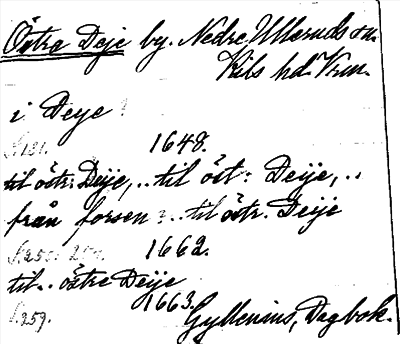 Östra Deje by. Nedre Ulleruds sn.
Kils hd. Vrm.
i Deye
S. 181. 1648.
til östr: Deije, .. til öst: Deije, ..
från forsen .. til östr. Deije
S. 250. 1662.
til .. östre Deije
S. 259. 1663. Gyllenius, Dagbok.